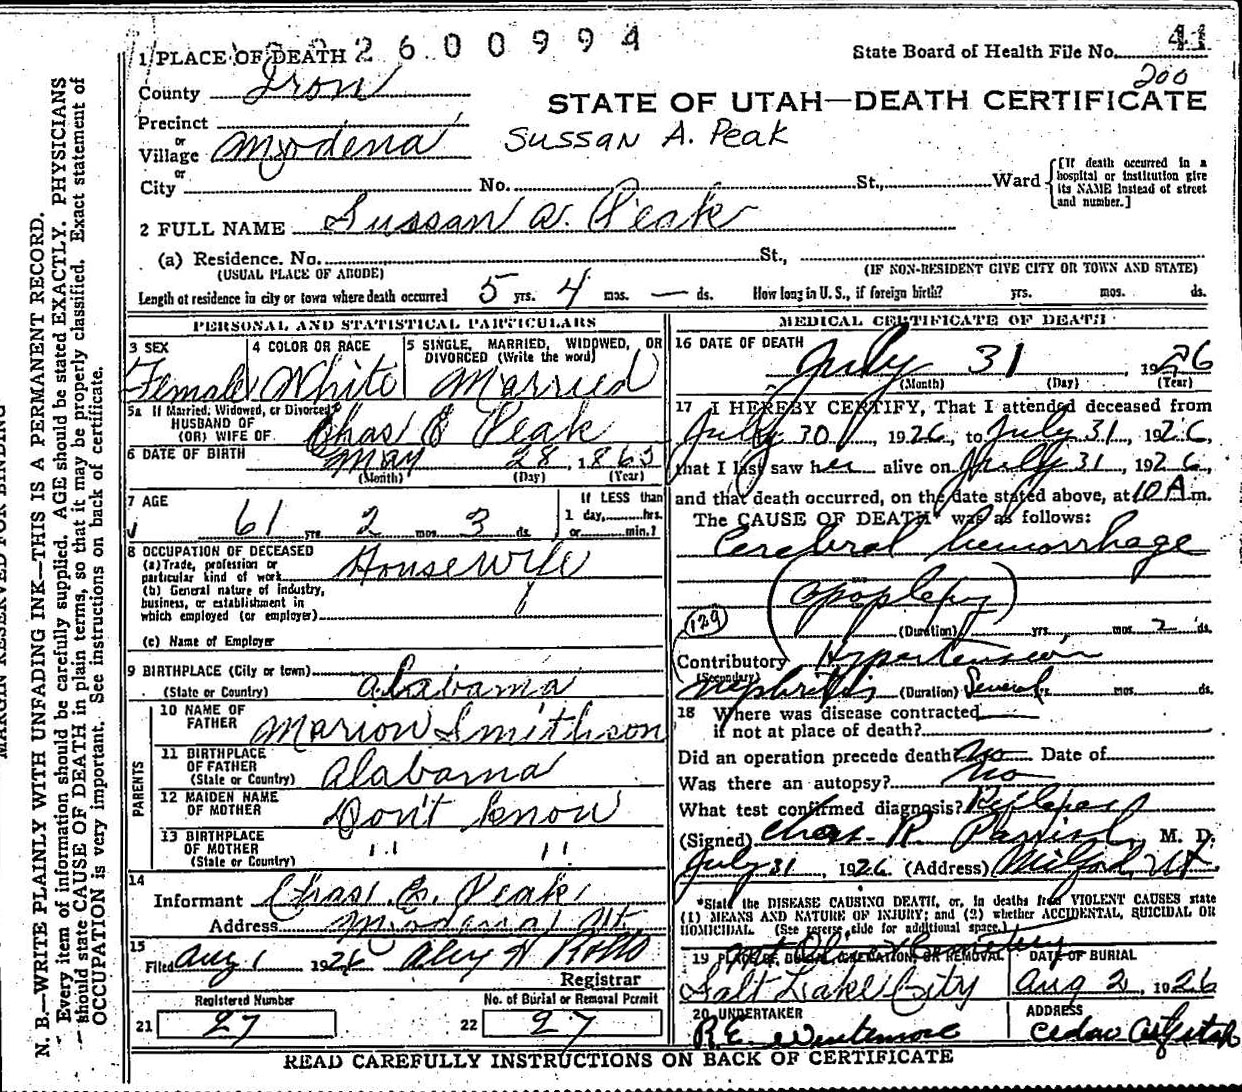 2600994
1 PLACE OF DEATH
State Board of Health File No. 41
200
County Iron
STATE OF UTAH—DEATH CERTIFICATE
Precinct
or
Village Modena
Sussan A. Peak
or
City No. St., Ward
[If death occurred in a hospital or institution give its NAME instead of street and number.]
2 FULL NAME Sussan A. Peak
(a) Residence. No. St.,
(USUAL PLACE OF ABODE) (IF NON-RESIDENT GIVE CITY OR TOWN AND STATE)
Length of residence in city or town where death occurred 5 yrs. 4 mos. — ds. How long in U. S., if foreign birth? yrs. mos. ds.
PERSONAL AND STATISTICAL PARTICULARS
3 SEX Female
4 COLOR OR RACE White
5 SINGLE, MARRIED, WIDOWED, OR DIVORCED (Write the word) Married
5a If Married, Widowed, or Divorced
HUSBAND OF
(OR) WIFE OF Chas E Peak
6 DATE OF BIRTH May 28, 1865
(Month) (Day) (Year)
7 AGE 61 yrs. 2 mos. 3 ds.
If LESS than
1 day, hrs.
or min.?
8 OCCUPATION OF DECEASED
(a) Trade, profession or
particular kind of work Housewife
(b) General nature of industry,
business, or establishment in
which employed (or employer)
(c) Name of Employer
9 BIRTHPLACE (City or town)
(State or Country) Alabama
PARENTS
10 NAME OF FATHER Marion Smithson
11 BIRTHPLACE OF FATHER
(State or Country) Alabama
12 MAIDEN NAME OF MOTHER Don't know
13 BIRTHPLACE OF MOTHER
(State or Country) " "
14
Informant Chas. E. Peak
Address Modena, Ut
15
Filed Aug 1 1926
Registrar
Registered Number
21 27
No. of Burial or Removal Permit
22 27
MEDICAL CERTIFICATE OF DEATH
16 DATE OF DEATH
July 31, 1926
(Month) (Day) (Year)
17 I HEREBY CERTIFY, That I attended deceased from
July 30, 1926, to July 31, 1926,
that I last saw her alive on July 31, 1926,
and that death occurred, on the date stated above, at 10 A m.
The CAUSE OF DEATH* was as follows:
Cerebral hemorrhage
(apoplexy)
129
(Duration) yrs. mos. 2 ds.
Contributory Hypertension
(Secondary)
Nephritis (Duration) Several yrs. mos. ds.
18 Where was disease contracted
if not at place of death?
Did an operation precede death? No Date of
Was there an autopsy? No
What test confirmed diagnosis?
(Signed) Chas. R. Parrish, M. D.
July 31, 1926 (Address) Milford, Ut.
*State the DISEASE CAUSING DEATH, or, in deaths from VIOLENT CAUSES state
(1) MEANS AND NATURE OF INJURY; and (2) whether ACCIDENTAL, SUICIDAL OR
HOMICIDAL. (See reverse side for additional space.)
19 PLACE OF BURIAL, CREMATION, OR REMOVAL
Mt Olivet Cemetery
Salt Lake City
DATE OF BURIAL
Aug 2, 1926
20 UNDERTAKER
R. E.
ADDRESS
Cedar City Utah
READ CAREFULLY INSTRUCTIONS ON BACK OF CERTIFICATE
MARGIN RESERVED FOR BINDING
N. B.—WRITE PLAINLY WITH UNFADING INK—THIS IS A PERMANENT RECORD.
Every item of information should be carefully supplied. AGE should be stated EXACTLY. PHYSICIANS
should state CAUSE OF DEATH in plain terms, so that it may be properly classified. Exact statement of
OCCUPATION is very important. See instructions on back of certificate.